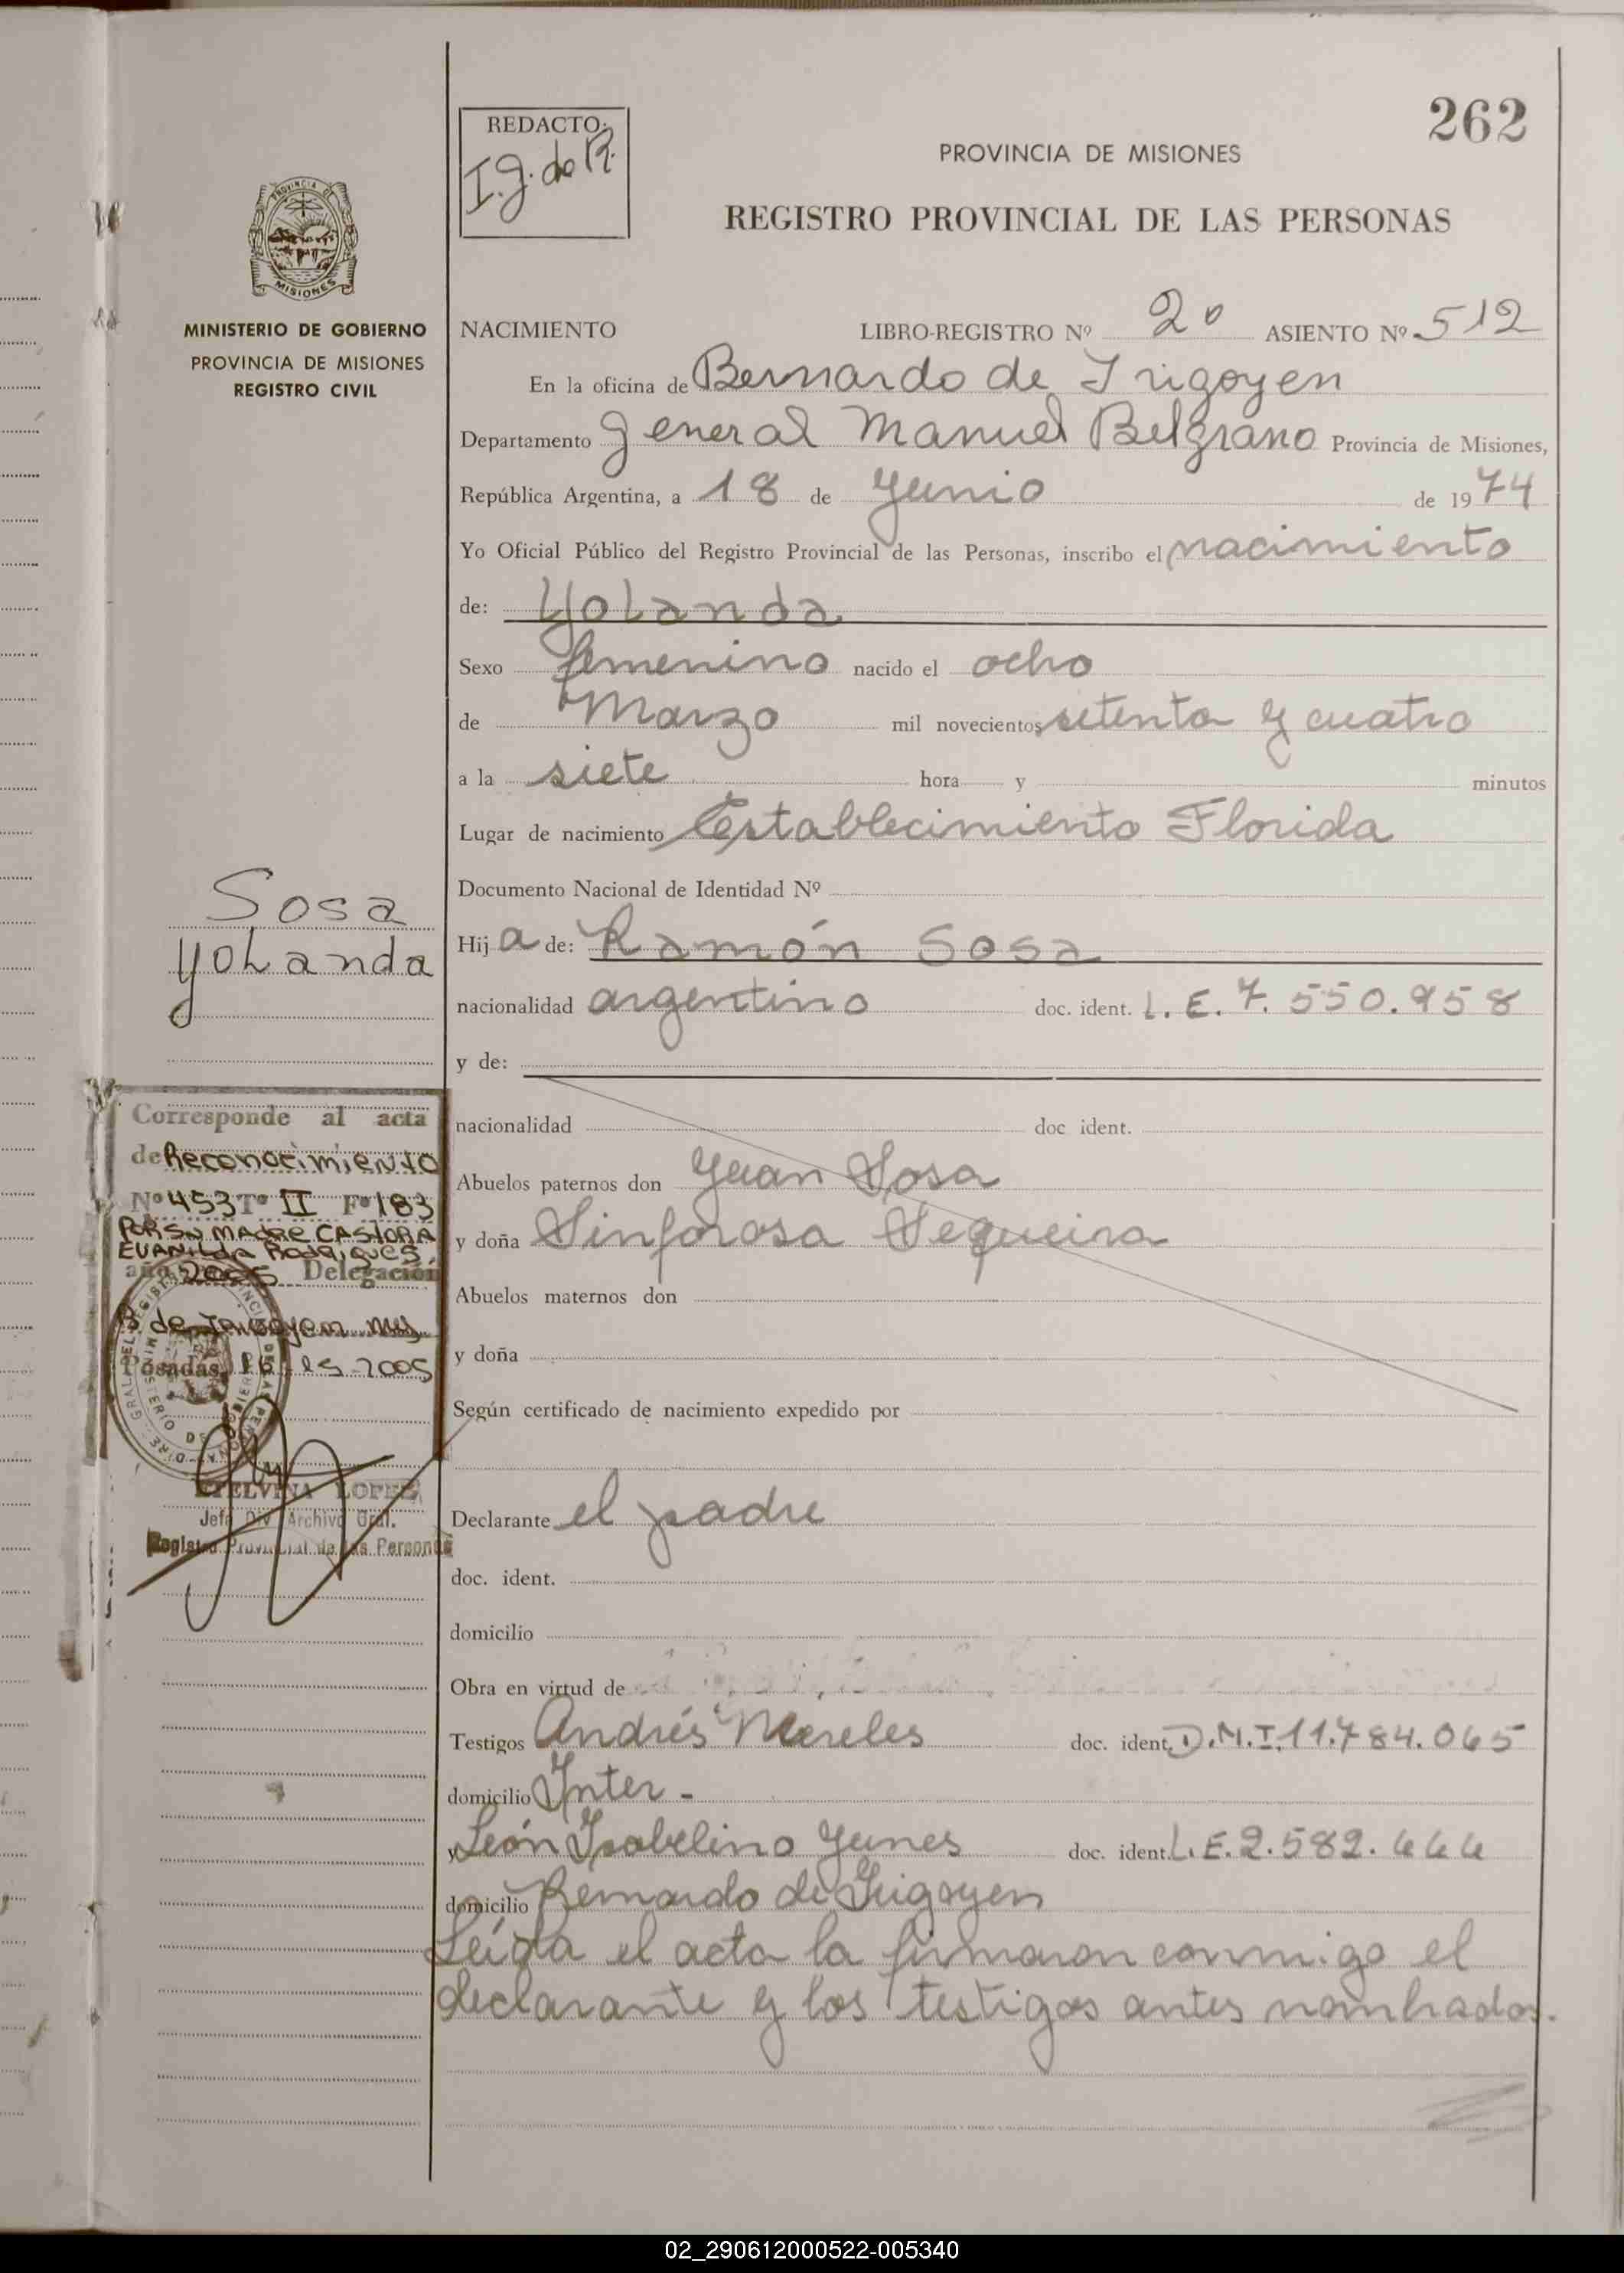 262
REDACTO:
I.J. de R.
PROVINCIA DE MISIONES
REGISTRO PROVINCIAL DE LAS PERSONAS
PROVINCIA DE
MISIONES
MINISTERIO DE GOBIERNO
PROVINCIA DE MISIONES
REGISTRO CIVIL
NACIMIENTO LIBRO-REGISTRO Nº 2º ASIENTO Nº 512
En la oficina de Bernardo de Irigoyen
Departamento General Manuel Belgrano Provincia de Misiones,
República Argentina, a 18 de Junio de 1974
Yo Oficial Público del Registro Provincial de las Personas, inscribo el nacimiento
de: Yolanda
Sexo femenino nacido el ocho
de Marzo mil novecientos setenta y cuatro
a la siete hora y minutos
Lugar de nacimiento Establecimiento Florida
Documento Nacional de Identidad Nº
Sosa
Yolanda
Hija de: Ramón Sosa
nacionalidad argentino doc. ident. L.E. 7.550.958
y de:
nacionalidad doc ident.
Abuelos paternos don Juan Sosa
y doña Sinforosa Sequeira
Abuelos maternos don
y doña
Según certificado de nacimiento expedido por
Corresponde al acta
de Reconocimiento
Nº 453 Tº II Fº 183
POR SU MADRE CASTORA
EVANILDA Rodrigues
año 2005 Delegación
B de Irigoyen Mis
Posadas, 16 2005
ETELVINA LOPEZ
Jefe Div. Archivo Gral.
Registro Provincial de las Personas
Declarante el padre
doc. ident.
domicilio
Obra en virtud de
Testigos Andrés Méreles doc. ident. D.N.I. 11.784.065
domicilio Inter -
y León Isabelino Yunes doc. ident. L.E. 2.582.666
domicilio Bernardo de Irigoyen
Leída el acta la firmaron conmigo el
declarante y los testigos antes nombrados.
02_290612000522-005340